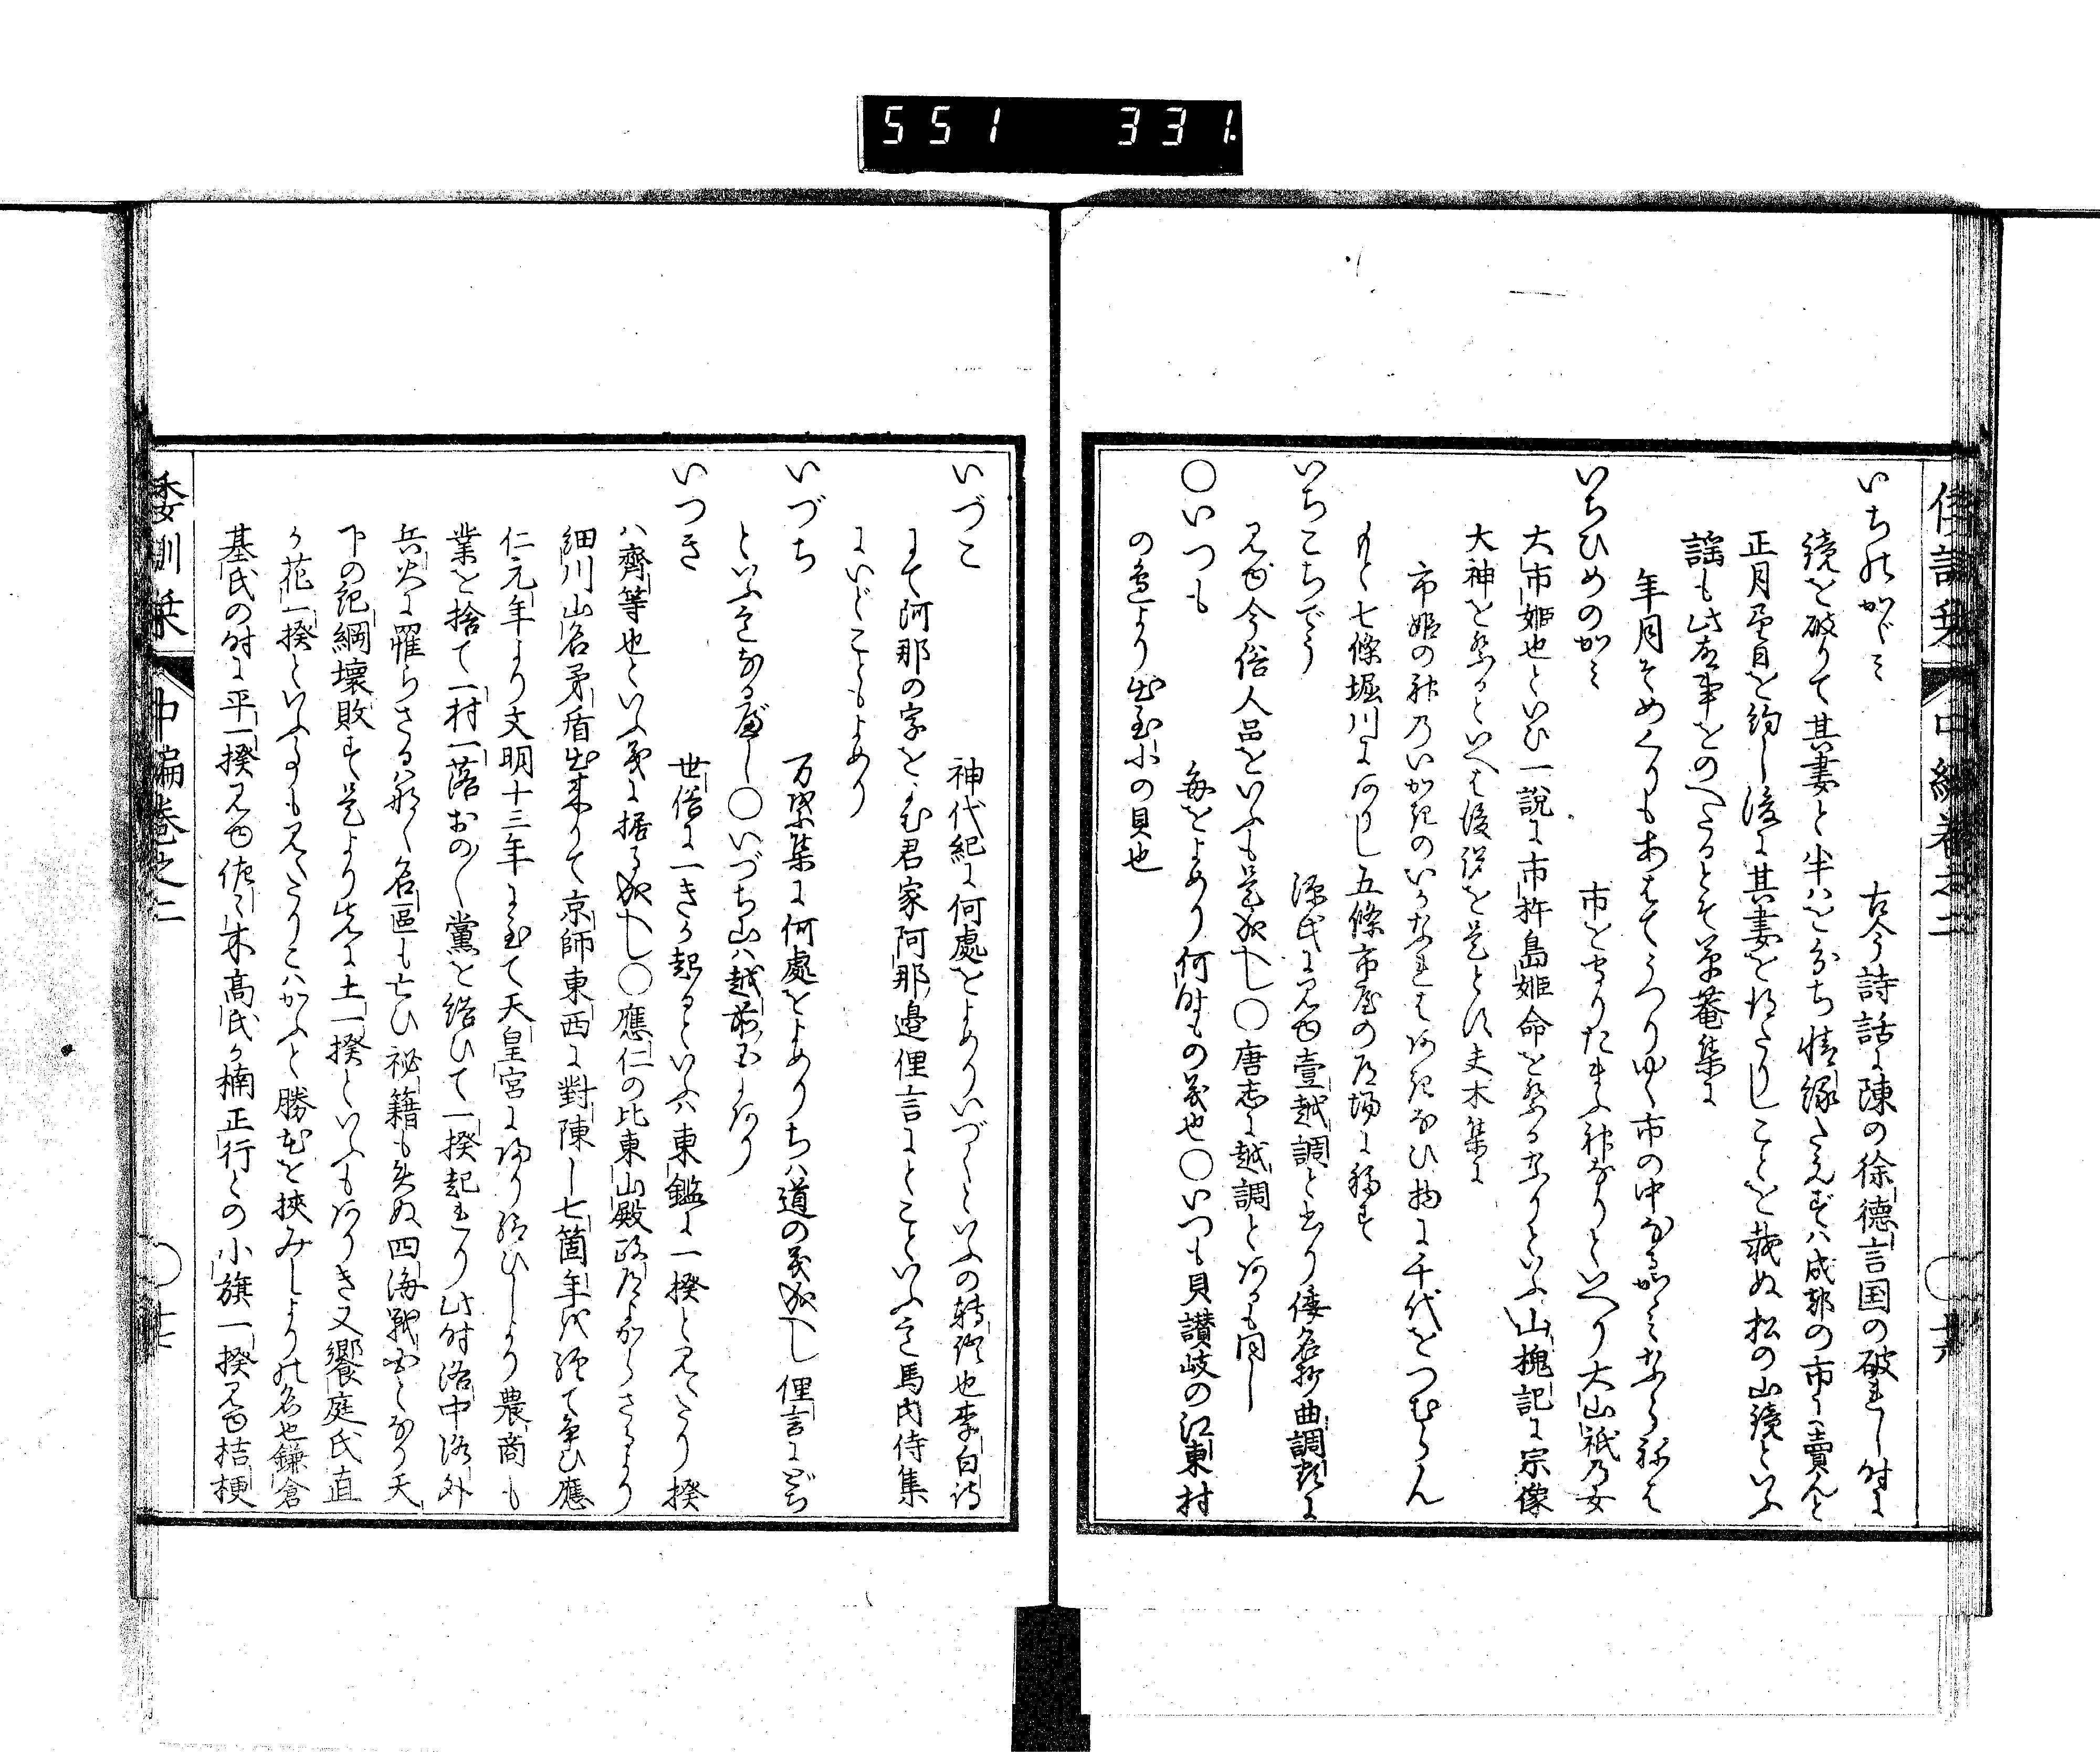 551 331
倭訓栞 中編巻之二 ○十六
いちのかゞミ 古今詩話に陳の徐徳言国の破れし時に
鏡を破りて其妻と半ハを分ち情縁たえずハ成都の市に売んと
正月望日を約し後に其妻を得たりしことを載ぬ松の山鏡といふ
謡も此故事をのべたるとぞ草菴集に
年月そめくりもあはてうつりゆく市の中なるかゝみならねは
いちひめのかミ 市を守りたまふ神なりといへり大山祇乃女
大市姫也といひ一説に市杵島姫命を祭るなりといふ山槐記に宗像
大神を祭るといへは後説を是とす夫木集に
市姫の神乃いかきのいかなれはあきなひ物に千代をつむらん
もと七條堀川にありし五條市屋の道場に移す
いちこちでう 源氏に見ゆ壹越調と書り倭名抄曲調類に
見ゆ今俗人品をいふも是成へし○唐志に越調とあるも同し
○いつも 毎をよめり何時もの義也○いつも貝讃岐の江東村
の邊より出至小の貝也
いづこ 神代紀に何處をよめりいづくといふの轉語也李白詩
にて阿那の字をよむ君家阿那邊俚言にとこといふも馬内侍集
にいどこともよめり
いづち 万葉集に何處をよめりちハ道の義成へし俚言にどち
といふも是なるべし○いづち山ハ越前国にあり
いつき 世俗に一きか起るといふハ東鑑に一揆と見えたり揆
ハ齊等也といふ義に據る成へし○應仁の比東山殿政道よからさるより
細川山名矛盾出来りて京師東西に對陳し七箇年を経て争ひ應
仁元年より文明十三年に至て天皇宮に帰り給ひしより農商も
業を捨て一村一落おの〳〵黨を結ひて一揆起れり此時洛中洛外
兵火に罹らさるハ那く名區も亡ひ秘籍も失ぬ四海戦国となり天
下の紀綱壊敗す是より先に土一揆といふもありき又饗庭氏直
か花一揆といふ事も見えたりこハかふと勝むを挟みしよりの名也鎌倉
基氏の時に平一揆見ゆ佐々木高氏か楠正行との小旗一揆見ゆ桔梗
倭訓栞 中編巻之二 ○十七